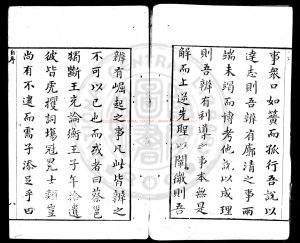 事眾口如簧而孤行吾說以
達志則吾辨有廓清之事兩
端未竭而博考他說以成理
則吾辨有利導之事本無是
解而上逆先聖以闢微則吾
辨有崛起之事凡此皆辨之
不可以已也而或者曰蔡邕
獨斷王充論衡王子年拾遺
彼皆虎擢詞場冠冕士類豈
尚有不遺而需子添足乎曰